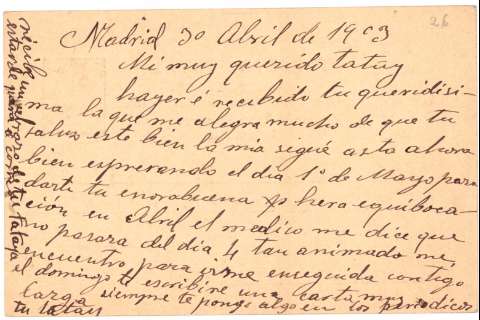 26
Madrid 30 Abril de 1903
Mi muy querido tatay
hayer é recibido tu queridisi-
ma la que me alegra mucho de que tu
salud esté bien la mia sigué asta ahora
bien esprerando el dia 1º de Mayo para
darte tu enorabuena hera equiboca-
ción en Abril el medico me dice que
no pasara del dia 4 tan animado me
encuentro para irme enseguida contigo
el domingo te escribire una carta muy
larga siempre te pongo algo en los periodicos
tu tatay
recibe un abrazo de tu tataya